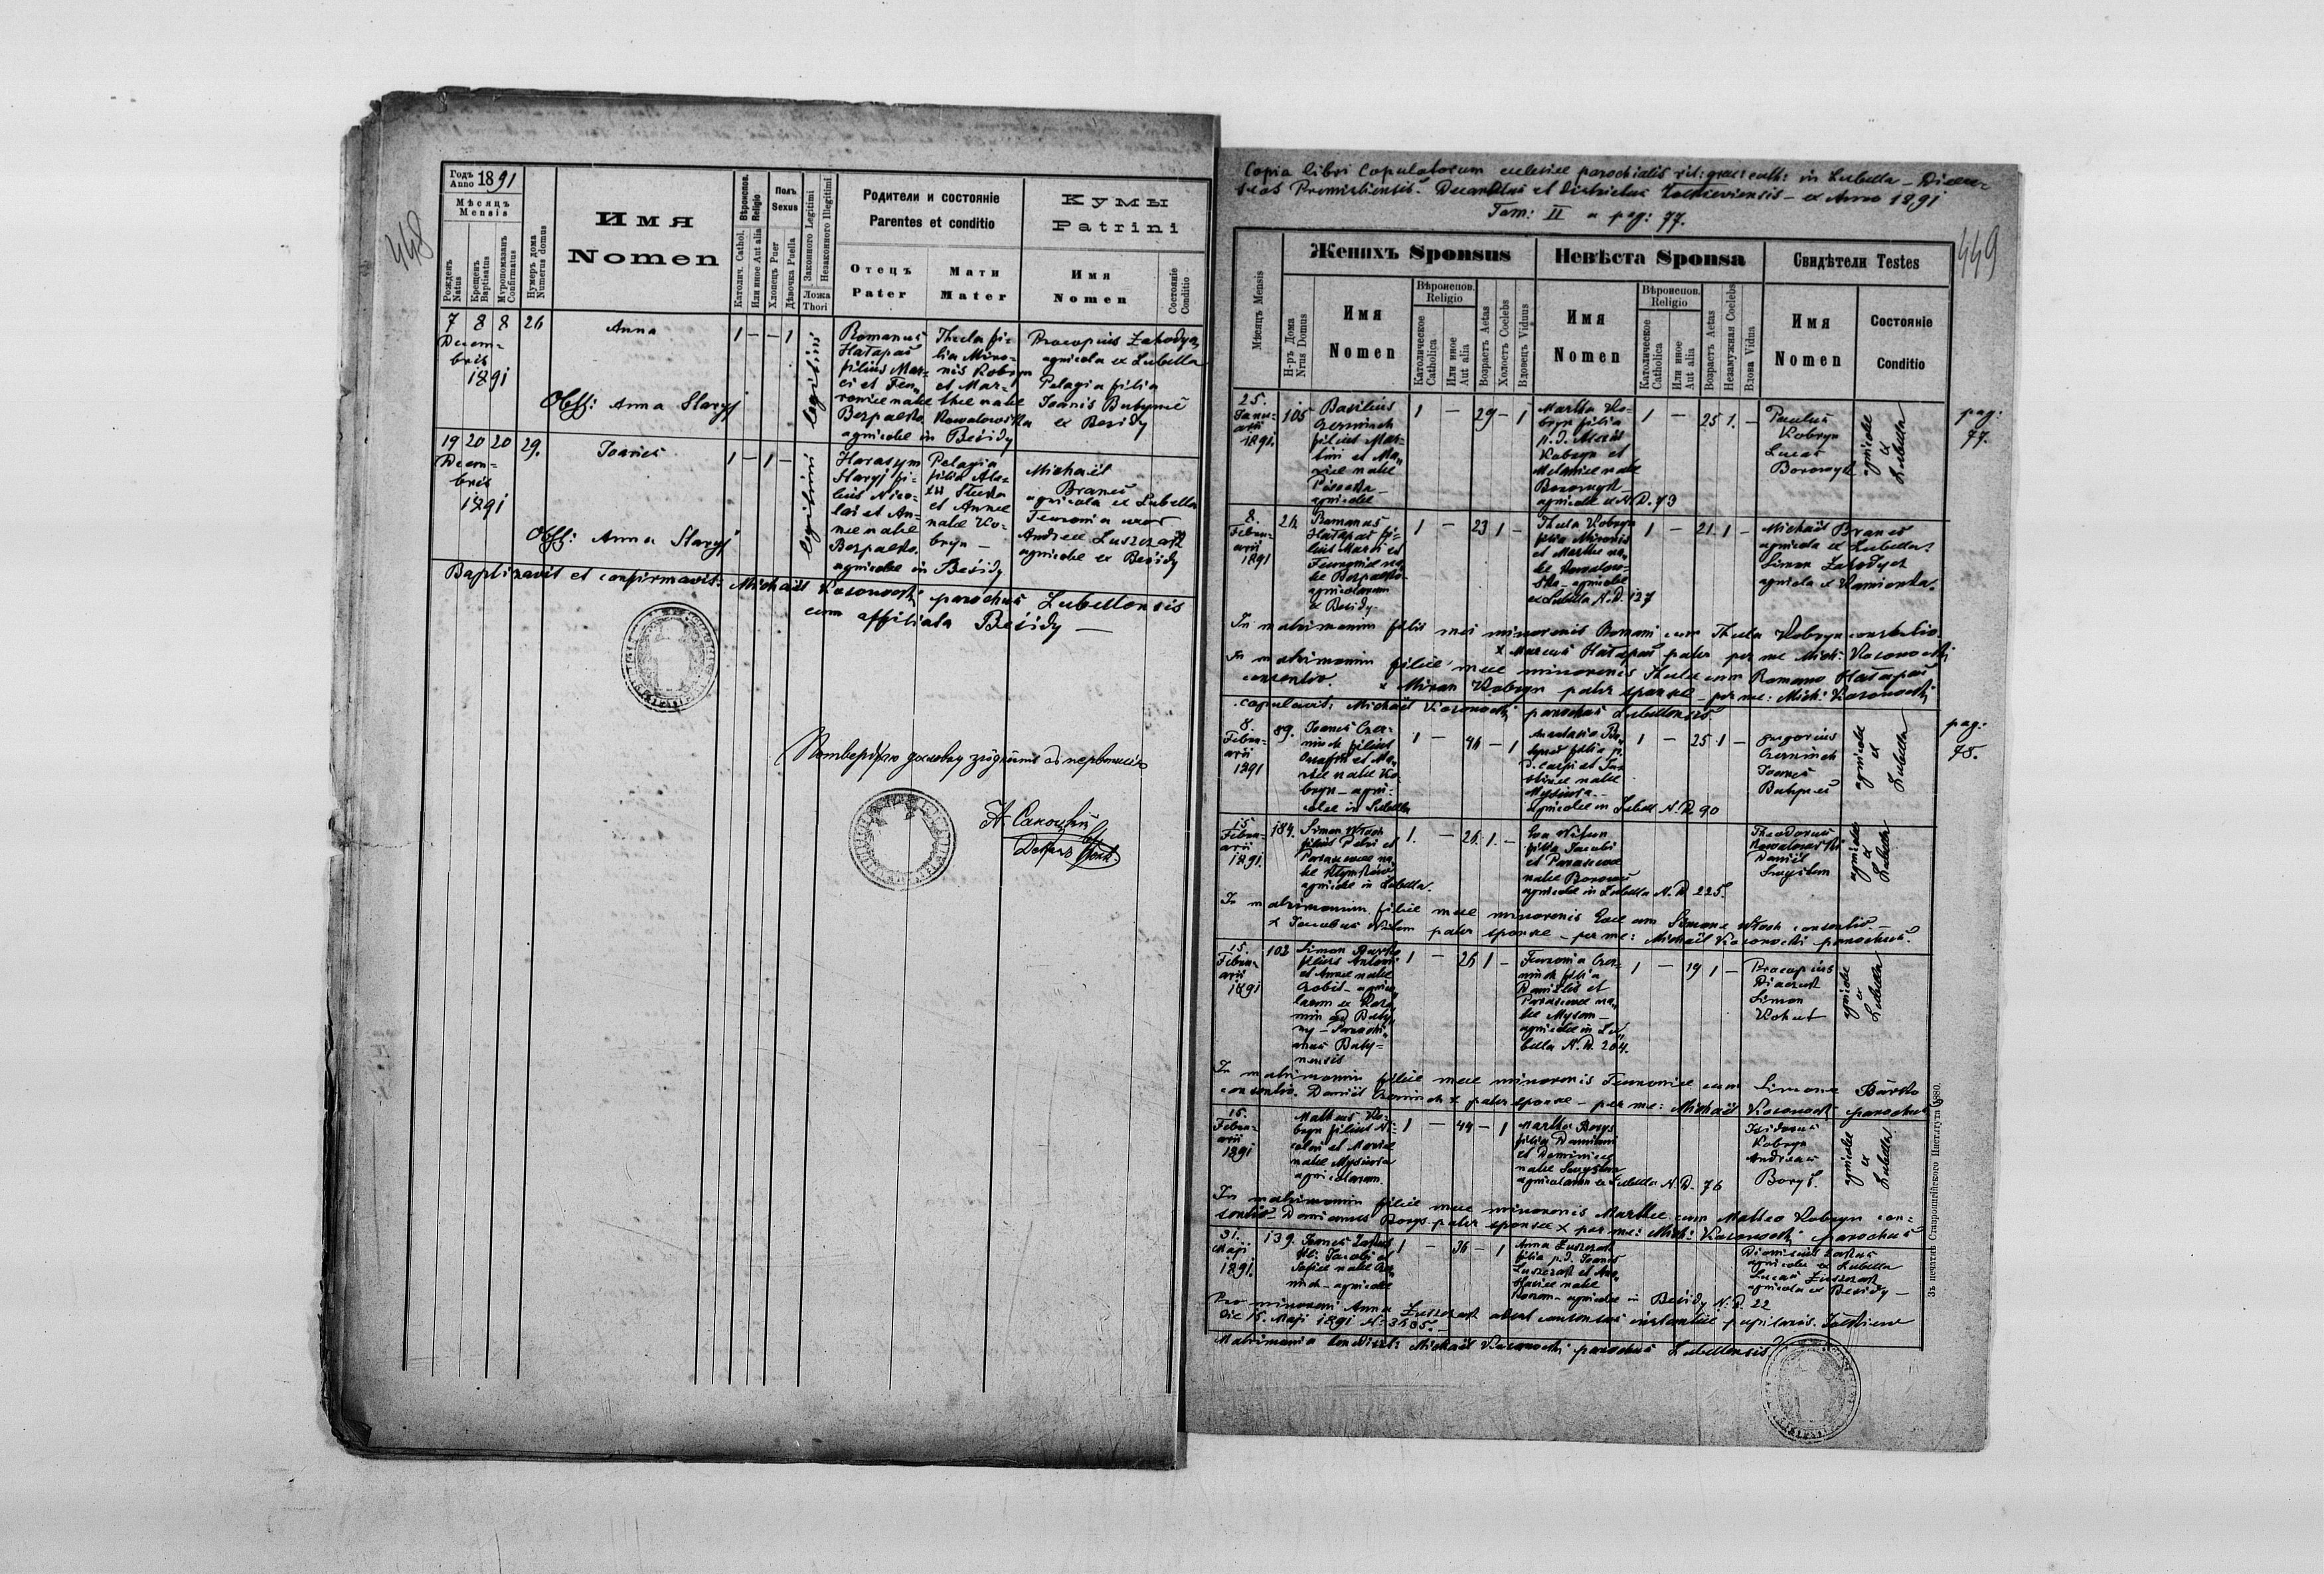 448
Годъ Anno 1891
Мѣсяцъ Mensis
Рожденъ Natus
Крещенъ Baptisatus
Мѵропомазанъ Confirmatus
Нумеръ дома Numerus domus
Имя
Nomen
Вѣроиспов. Religio
Католич. Cathol.
Или иное Aut alia
Полъ Sexus
Хлопець Puer
Дѣвочка Puella
Законного Legitimi
Незаконного Illegitimi
Ложа Thori
Родители и состояніе
Parentes et conditio
Отецъ
Pater
Мати
Mater
Кумы
Patrini
Имя
Nomen
Состояніе
Conditio
7 8 8 26 Anna 1 – – 1 legitimi
Decem-
bris
1891
Obst: Anna Slaryj
Romanus
Hałapas
filius Mar-
ci et Feu-
roniae natae
Bezpalko
agricolae in Besidy
Thecla fi-
lia Miro-
nis Kobryn
et Mar-
thae natae
Kowalowska
Procopius Zahodycz
agricola ex Lubella
Pelagia filia
Joannis Babyneć
ex Besidy
19 20 20 29. Joannes 1 – 1 – legitimi
Decem-
bris
1891
Obst: Anna Slaryj
Harasym
Slaryj fi-
lius Nico-
lai et An-
nae natae
Bezpalko
agricolae in Besidy
Pelagia
filia
et Annae
natae Ko-
bryn –
Michael
Braneć
agricola ex Lubella
Feuronia uxor
Andreae Luszczak
agricolae ex Besidy
Baptizavit et confirmavit: Michael Kosonocki parochus Lubellensis
cum affiliata Besidy –
Потверджаю дословну згôднôсть съ первописію
449
Copia libri Copulatorum ecclesiae parochialis rit: graec cath: in Lubella – Dioece-
seos Premisliensis. Decanatus et districtus Zolkieviensis – ex Anno 1891
Tom: II a pag: 77.
Мѣсяцъ Mensis
Женихъ Sponsus
Н-ръ Дома
Nrus Domus
Имя
Nomen
Вѣроиспов.
Religio
Католическое
Catholica
Или иное
Aut alia
Возрастъ Aetas
Холостъ Coelebs
Вдовець Viduus
Невѣста Sponsa
Имя
Nomen
Вѣроиспов.
Religio
Католическое
Catholica
Или иное
Aut alia
Возрастъ Aetas
Незамужная Coelebs
Вдова Vidua
Свидѣтели Testes
Имя
Nomen
Состояніе
Conditio
25.
Janu-
arii
1891.
105 Basilius
Czerminch
filius Mar-
tini et Ma-
riae natae
agricolae
1 – 29 – 1
Martha Ko-
bryn filia
p. d.
Kobryn et
Melaniae natae
agricolae ex N. D. 73
1 – 25 1. –
Paulus
Kobryn
Lucas
agricolae
ex
Lubella
pag:
77.
8.
Febru-
arii
1891
26 Romanus
Hałapas fi-
lius Marci et
Feuroniae na-
tae Bezpalko
agricolarum
ex Besidy
1 – 23 1 –
Thecla Kobryn
filia Mironis
et Marthae na-
tae Kowalow-
ska – agricolae
ex Lubella N. D. 127
1 – 21. 1 –
Michael Braneć
agricola ex Lubella
Simon Zahodycz
agricola ex Kamionka.
In matrimonium filii mei minorenis Romani cum Thecla Kobryn consentio.
x Marcus Hałapas pater per me Mich: Kosonocki
In matrimonium filiae meae minorenis Theclae cum Romano Hałapas
consentio x Miron Kobryn pater sponsae per me: Mich: Kosonocki
copulavit: Michael Kosonocki parochus Lubellensis
8
Febru-
arii
1891
89. Joannes Czer-
minch filius
Onufrii et Ma-
riae natae Ko-
bryn – agri-
colae in Lubella
1 – 46 – 1
Anastasia
filia p.
d. Carpi et Ju-
stinae natae
agricolae in Lubella N. D. 90
1 – 25 1 –
Gregorius
Czerminch
Joannes
Babyneć
agricolae
ex
Lubella
pag:
78.
15
Febru-
arii
1891.
184. Simon Włoch
filius Petri et
Parasceviae na-
tae
agricolae in Lubella.
1. – 26. 1. –
Eva
filia Jacobi
et Parasceviae
natae
agricolae in Lubella N. D. 225.
Theodorus
Kowalowski
Daniel
agricolae
ex
Lubella
In matrimonium filiae meae minorenis Evae cum Simone Włoch consentio. –
x Jacobus pater sponsae – per me: Michael Kosonocki parochus.
15.
Febru-
arii
1891
102 Simon Barsko
filius Antoni
et Annae natae
1 – 26 1 –
Feuronia Czer-
minch filia
Danielis et
Parasceviae na-
tae
agricolae in Lu-
bella N. D. 204.
1 – 19 1 –
Procopius
Simon
Kohut
agricolae
ex
Lubella
In matrimonium filiae meae minorenis Feuroniae cum Simone Barsko
consentio. Daniel Czerminch x pater sponsae – per me: Michael Kosonocki parochus
15.
Febru-
arii
1891
Matheus Ko-
bryn filius Ni-
colai et Mariae
natae
agricolarum
1 – 44 – 1
Martha Borys
filia Damiani
et Dominicae
natae
agricolarum ex Lubella N. D. 76
Isidorus
Kobryn
Andreas
Borys.
agricolae
ex
Lubella
In matrimonium filiae meae minorenis Marthae cum Matteo Kobryn con-
sentio Damianus Borys pater sponsae x per me: Mich: Kosonocki parochus
31.
Maji
1891.
139. Joannes
fil: Jacobi et
Sofiae natae Czer-
minch – agricolae
1 – 36 – 1
Anna Luszczak
filia p. d. Joannis
Luszczak et Ana-
stasiae natae
agricolae in Besidy N. D. 22
Dionisius
agricola ex Lubella
Lucas Luszczak
agricola ex Besidy –
Pro minoreni Anna Luszczak adest consensus instantiae pupilaris
die 15. Maji 1891 N: 3685.
Matrimonia benedixit: Michael Kosonocki parochus Lubellensis
Зъ печатнѣ Ставропигійского Института 1880.